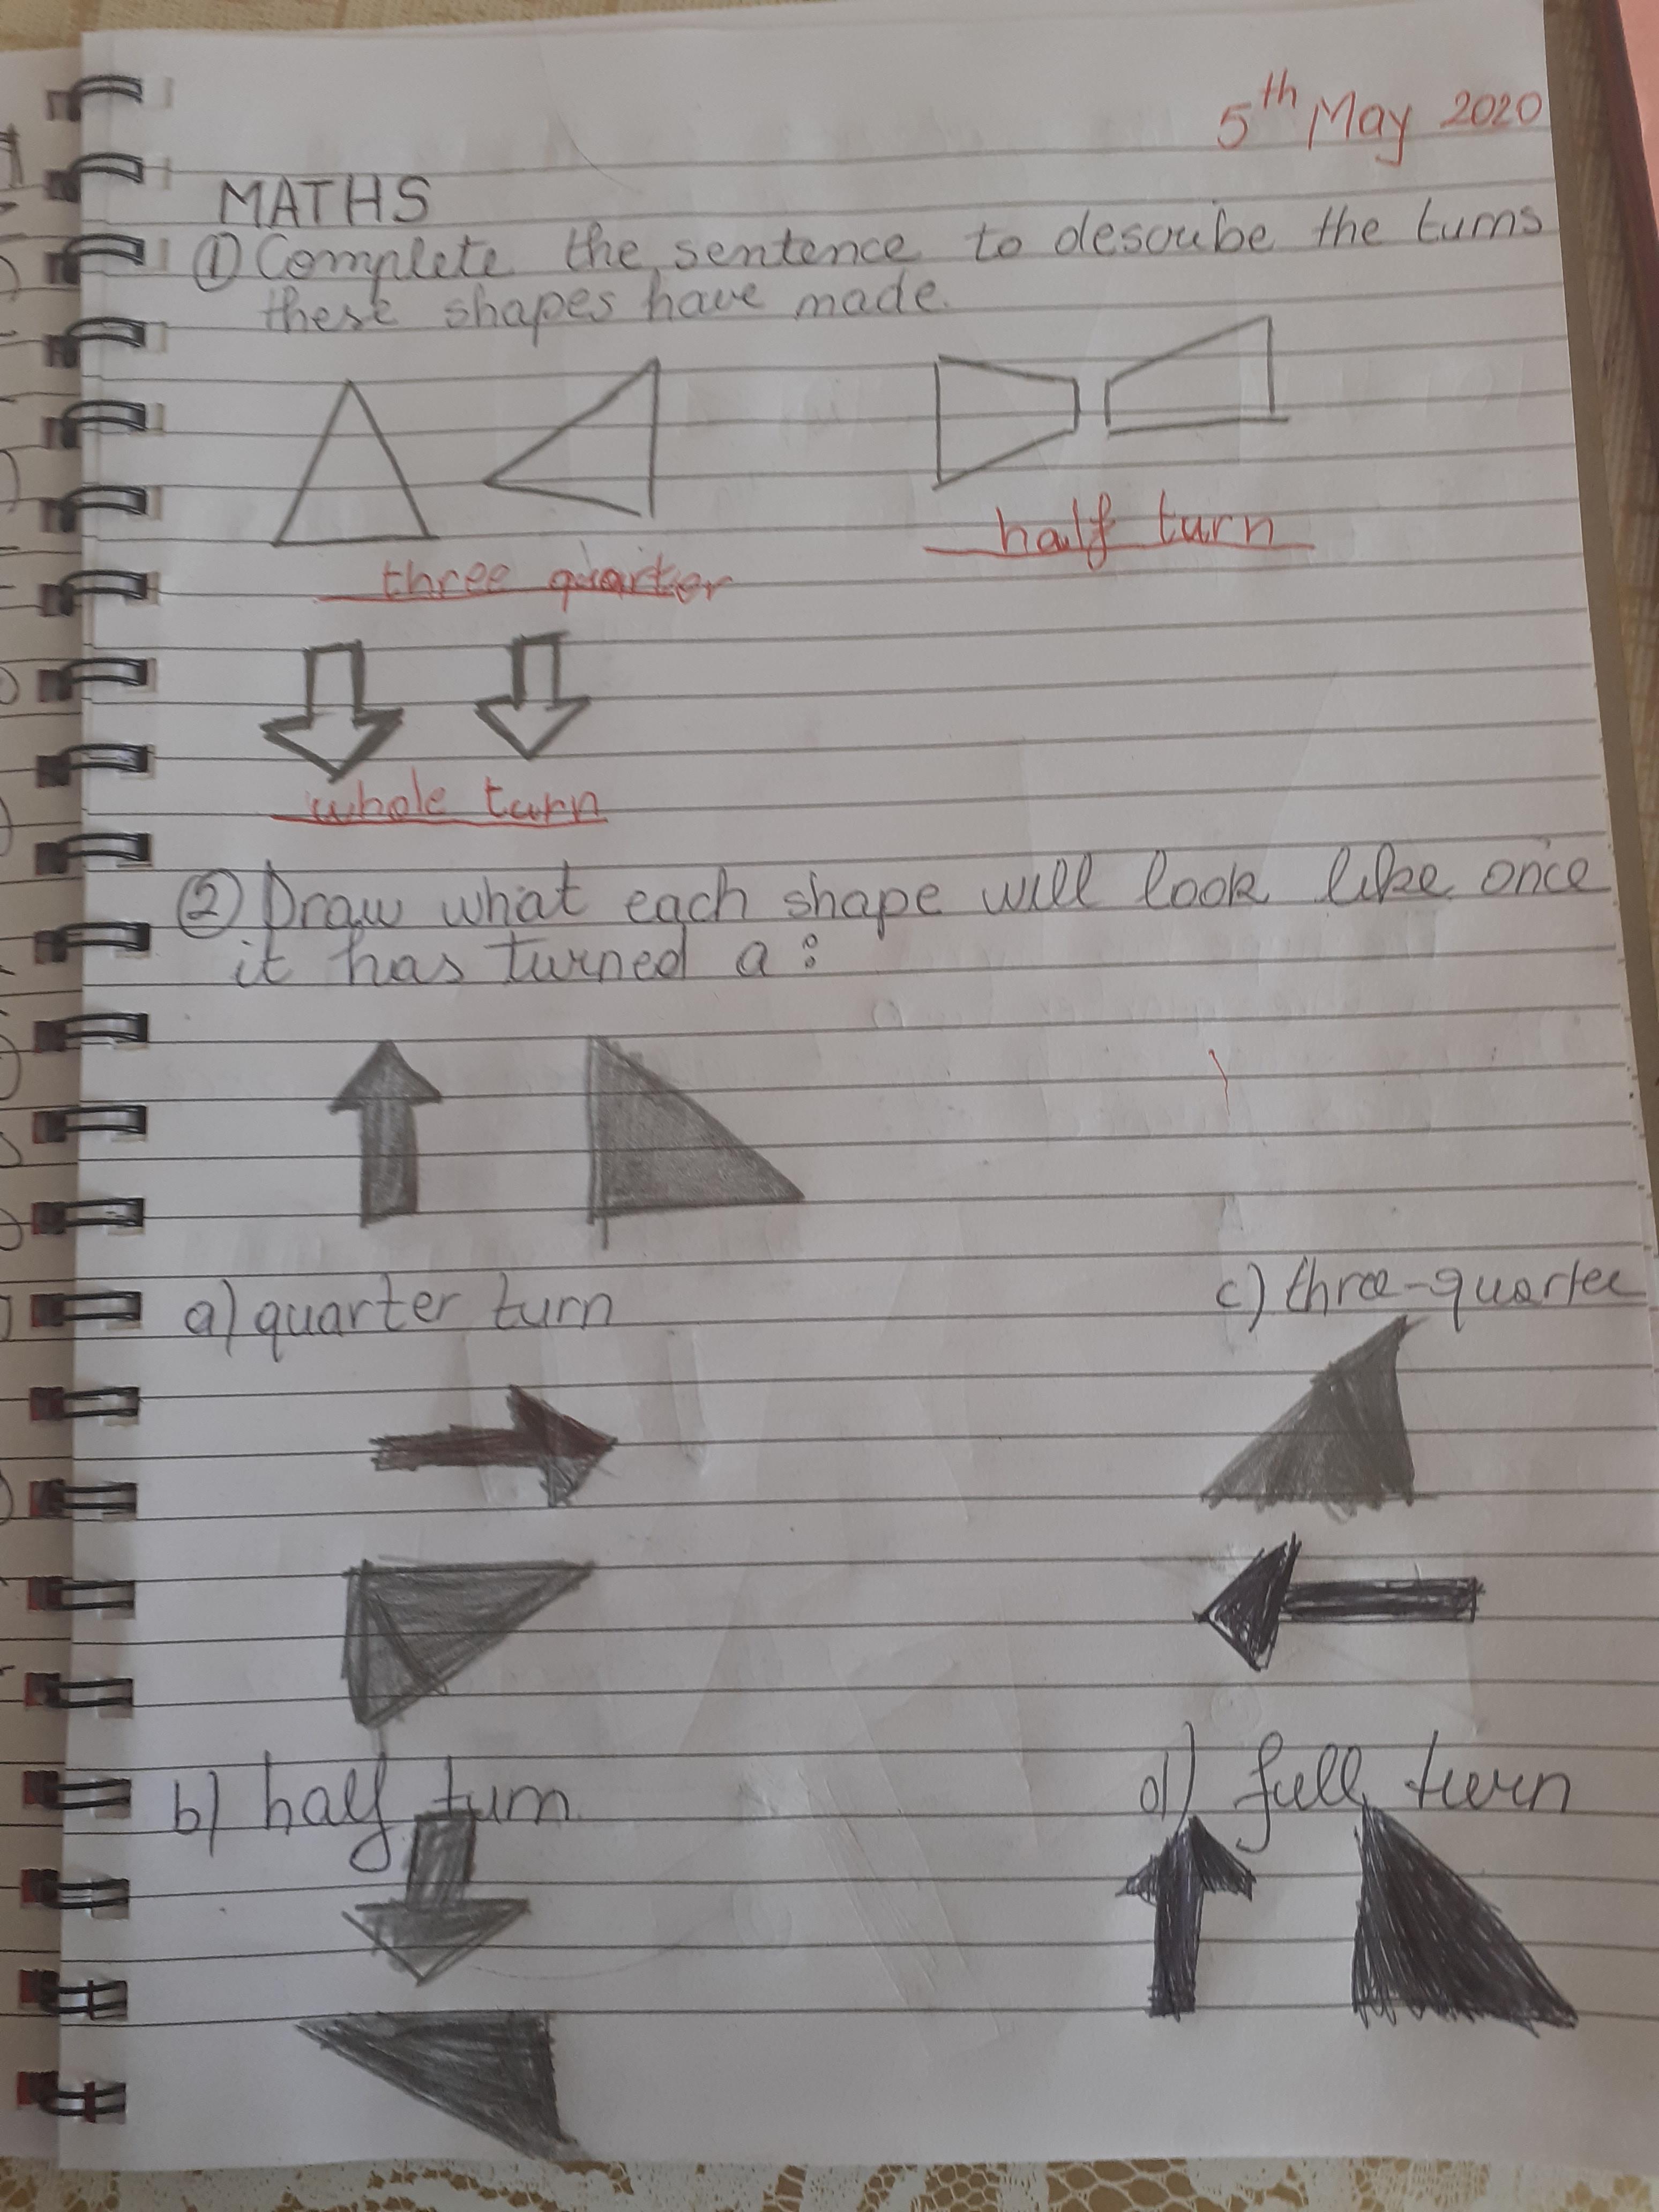 5th May 2020
MATHS
① Complete the sentence to describe the turns
these shapes have made.
half turn
three quarter
whole turn
② Draw what each shape will look like once
it has turned a :
a) quarter turn
c) three-quarter
b) half turn
d) full turn